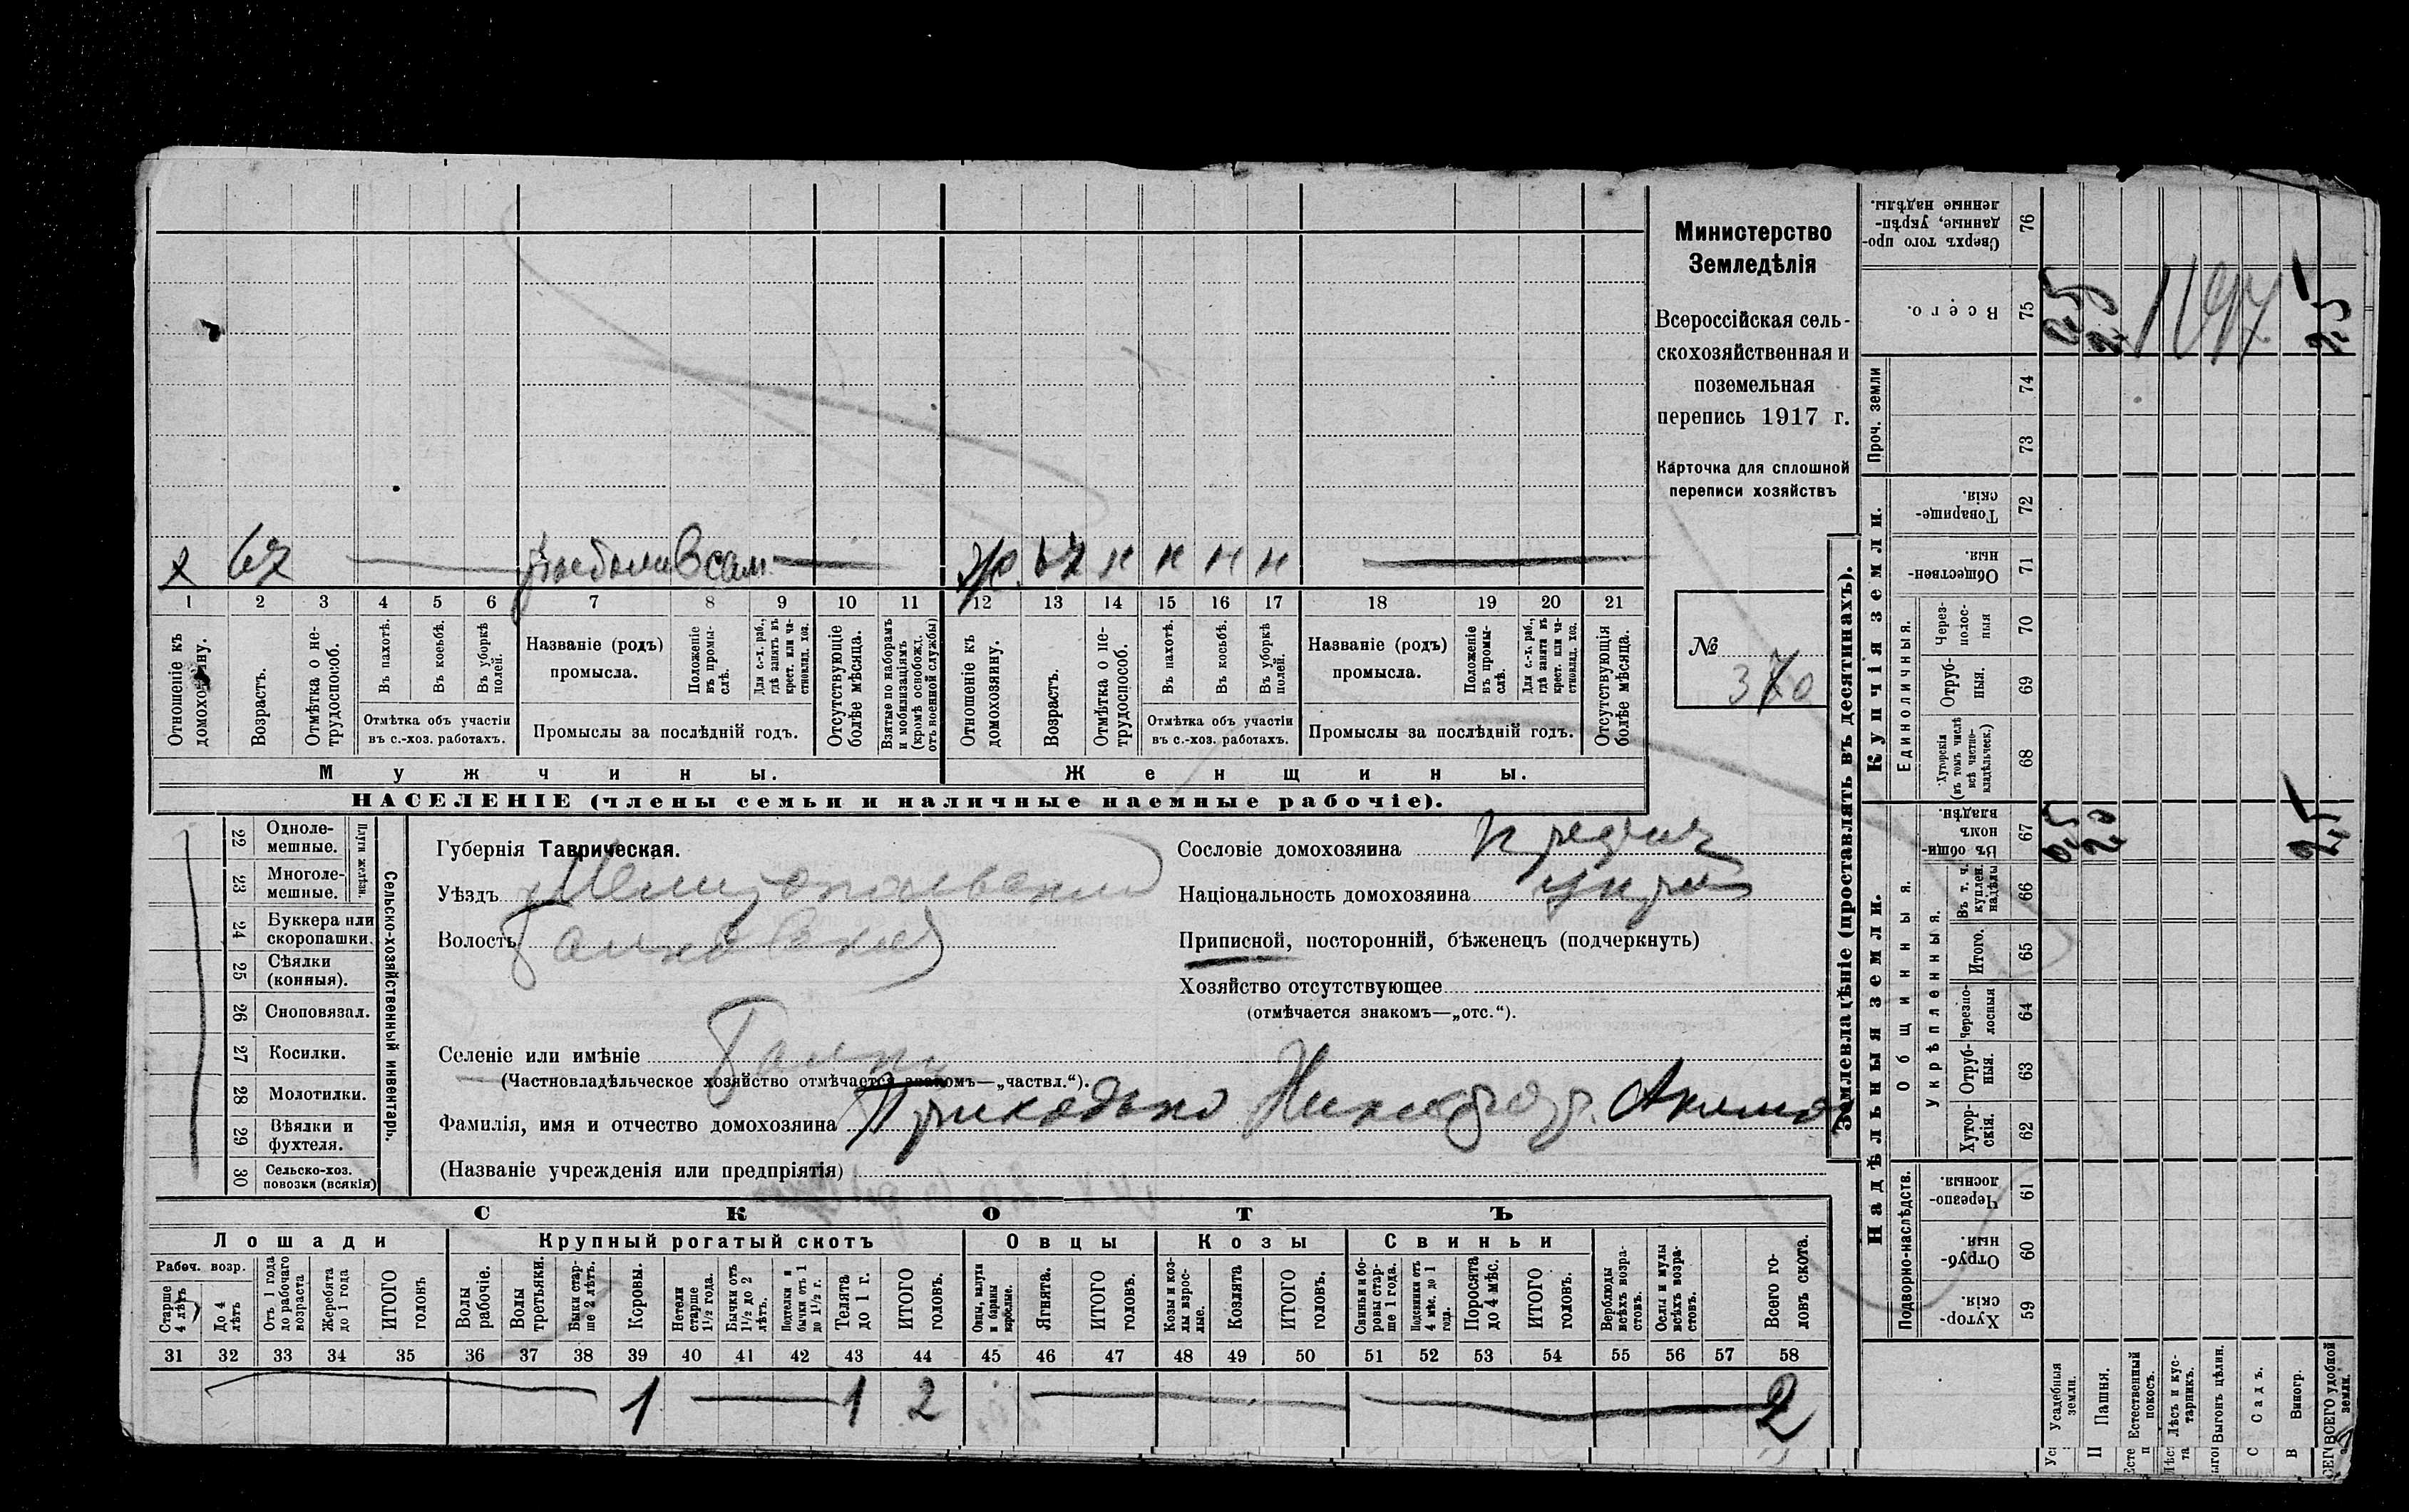 Министерство
Земледѣлія
Всероссійская сель-
скохозяйственная и
поземельная
перепись 1917 г.
Карточка для сплошной
переписи хозяйствъ
№
370
х 67 сам
ж. 57 н н н н
1 2 3 4 5 6 7 8 9 10 11 12 13 14 15 16 17 18 19 20 21
Отношеніе къ
домохозяину.
Возрастъ.
Отмѣтка о не-
трудоспособ.
Въ пахотѣ.
Въ косьбѣ.
Въ уборкѣ
полей.
Отмѣтка объ участіи
въ с.-хоз. работахъ.
Названіе (родъ)
промысла.
Положеніе
въ промы-
слѣ.
Для с.-х. раб.,
гдѣ занятъ въ
крест. или ча-
стновлад. хоз.
Промыслы за послѣдній годъ.
Отсутствующіе
болѣе мѣсяца.
Взятые по наборамъ
и мобилизаціямъ
(кромѣ освобожд.
отъ военной службы)
Отношеніе къ
домохозяину.
Возрастъ.
Отмѣтка о не-
трудоспособ.
Въ пахотѣ.
Въ косьбѣ.
Въ уборкѣ
полей.
Отмѣтка объ участіи
въ с.-хоз. работахъ.
Названіе (родъ)
промысла.
Положеніе
въ промы-
слѣ.
Для с.-х. раб.,
гдѣ занята въ
крест. или ча-
стновлад. хоз.
Промыслы за послѣдній годъ.
Отсутствующія
болѣе мѣсяца.
Мужчины.
Женщины.
НАСЕЛЕНІЕ (члены семьи и наличные наемные рабочіе).
Сельско-хозяйственный инвентарь.
Плуги желѣзн.
22 Одноле-
мешные.
23 Многоле-
мешные.
24 Буккера или
скоропашки.
25 Сѣялки
(конныя).
26 Сноповязал.
27 Косилки.
28 Молотилки.
29 Вѣялки и
фухтеля.
30 Сельско-хоз.
повозки (всякія)
Губернія Таврическая.
Уѣздъ Мелитопольскій
Волость Балковская
Селеніе или имѣніе Балки
(Частновладѣльческое хозяйство отмѣчается знакомъ—„частвл.“).
Фамилія, имя и отчество домохозяина Приходько Никифор. Акимов
(Названіе учрежденія или предпріятія)
Сословіе домохозяина
Національность домохозяина укра
Приписной, посторонній, бѣженецъ (подчеркнуть)
Хозяйство отсутствующее
(отмѣчается знакомъ—„отс.“).
СКОТЪ
Лошади
Рабоч. возр.
Старше
4 лѣтъ
До 4
лѣтъ
Отъ 1 года
до рабочаго
возраста
Жеребята
до 1 года
ИТОГО
головъ
Крупный рогатый скотъ
Волы
рабочіе.
Волы
третьяки.
Быки стар-
ше 2 лѣтъ.
Коровы.
Нетели
старше
1½ года.
Бычки отъ
1½ до 2
лѣтъ.
Подтелки и
бычки отъ 1
до 1½ г.
Телята
до 1 г.
ИТОГО
головъ.
Овцы
Овцы, валухи
и бараны
взрослые.
Ягнята.
ИТОГО
головъ.
Козы
Козы и коз-
лы взрос-
лые.
Козлята
ИТОГО
головъ.
Свиньи
Свиньи и бо-
ровы стар-
ше 1 года.
Подсвинки отъ
4 мѣс. до 1
года.
Поросята
до 4 мѣс.
ИТОГО
головъ.
Верблюды
всѣхъ возра-
стовъ.
Ослы и мулы
всѣхъ возра-
стовъ.
Всего го-
ловъ скота.
31 32 33 34 35 36 37 38 39 40 41 42 43 44 45 46 47 48 49 50 51 52 53 54 55 56 57 58
1 1 2 2
Землевладѣніе (проставлять въ десятинахъ).
Надѣльныя земли.
Подворно-наслѣдств.
Хутор-
скія 59
Отруб-
ныя. 60
Черезпо-
лосныя. 61
Общинныя.
Укрѣпленныя.
Хутор-
скія. 62
Отруб-
ныя. 63
Черезпо-
лосныя 64
Итого. 65
Въ т. ч.
куплен.
надѣлы 66
Въ общи-
номъ
владѣн. 67
Купчія земли.
Единоличныя.
Хуторскія
(въ томъ числѣ
всѣ частно-
владѣльческ.) 68
Отруб-
ныя. 69
Через-
полос-
ныя 70
Обществен-
ныя. 71
Товарище-
скія. 72
Проч. земли
73
74
Всего. 75
Сверхъ того про-
данные, укрѣп-
ленные надѣлы. 76
Усадебныя
земли. 0,5 0,5
Пашня. 2,0 2,0
Естественный
покосъ.
Лѣсъ и кус-
тарникъ.
Выгонъ цѣлин.
Садъ.
Виногр.
ВСЕГО удобной
земли. 2,5 2,5